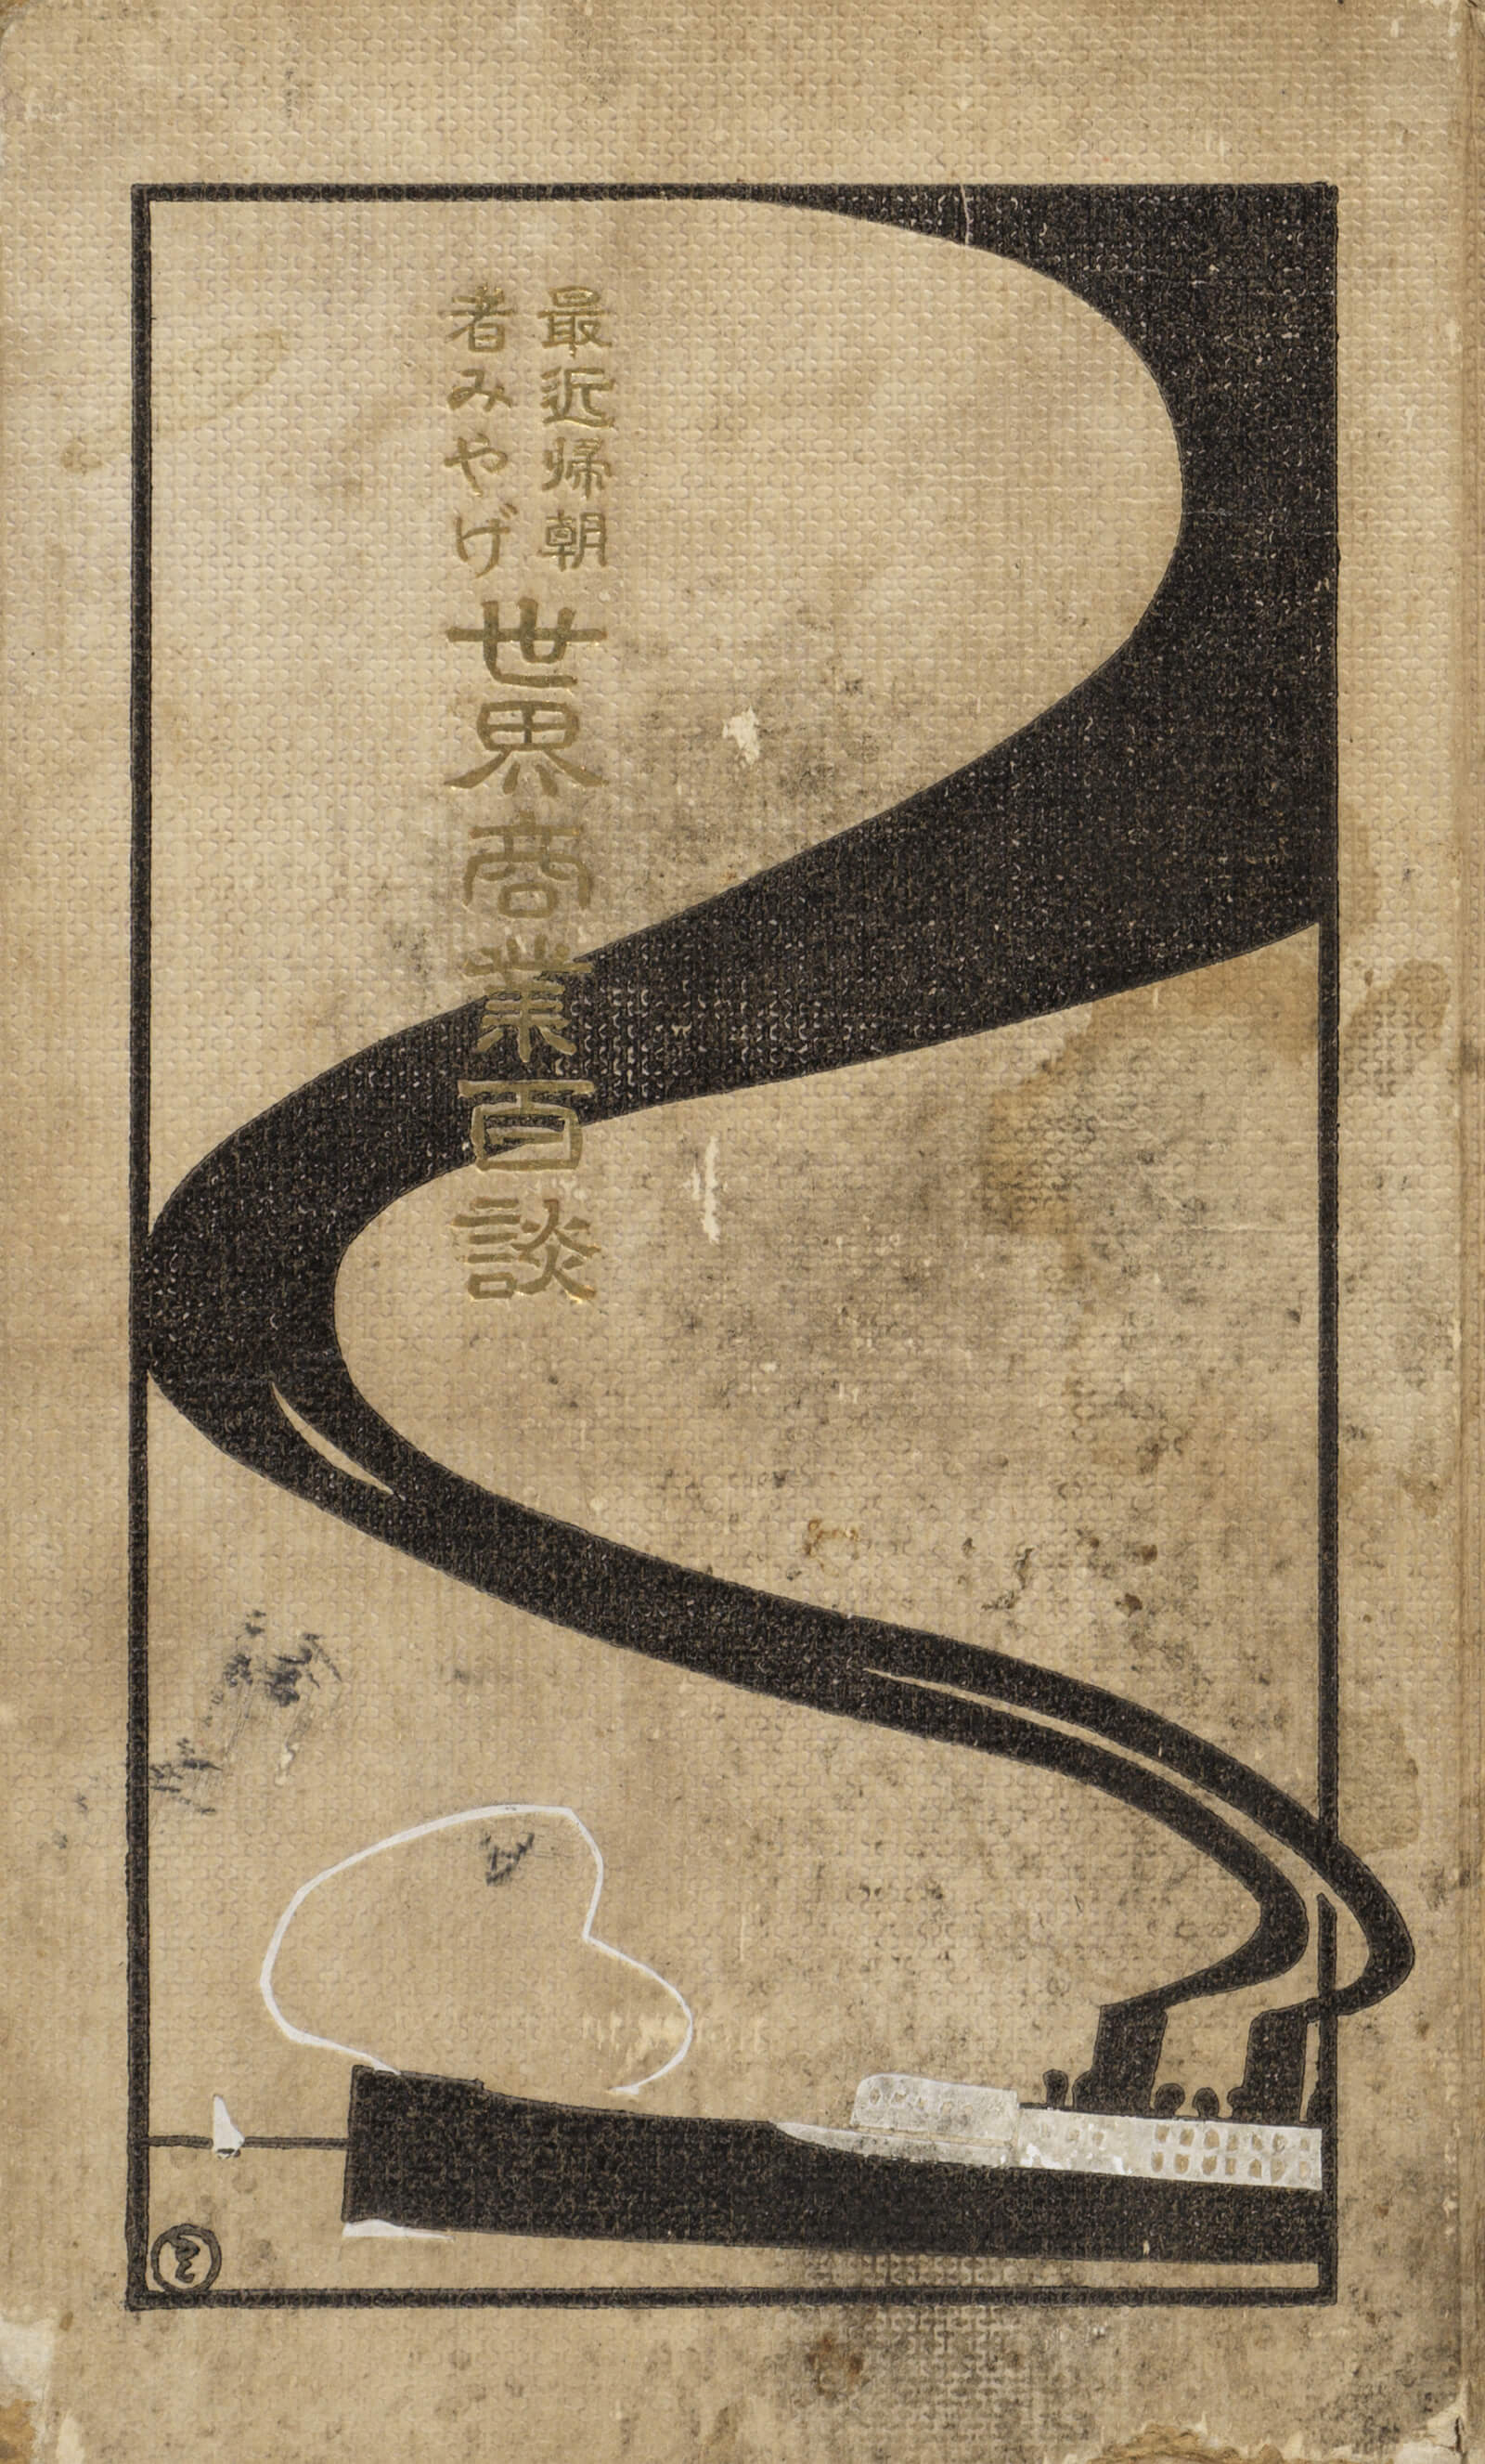 最近帰朝
者みやげ
世界商業百談